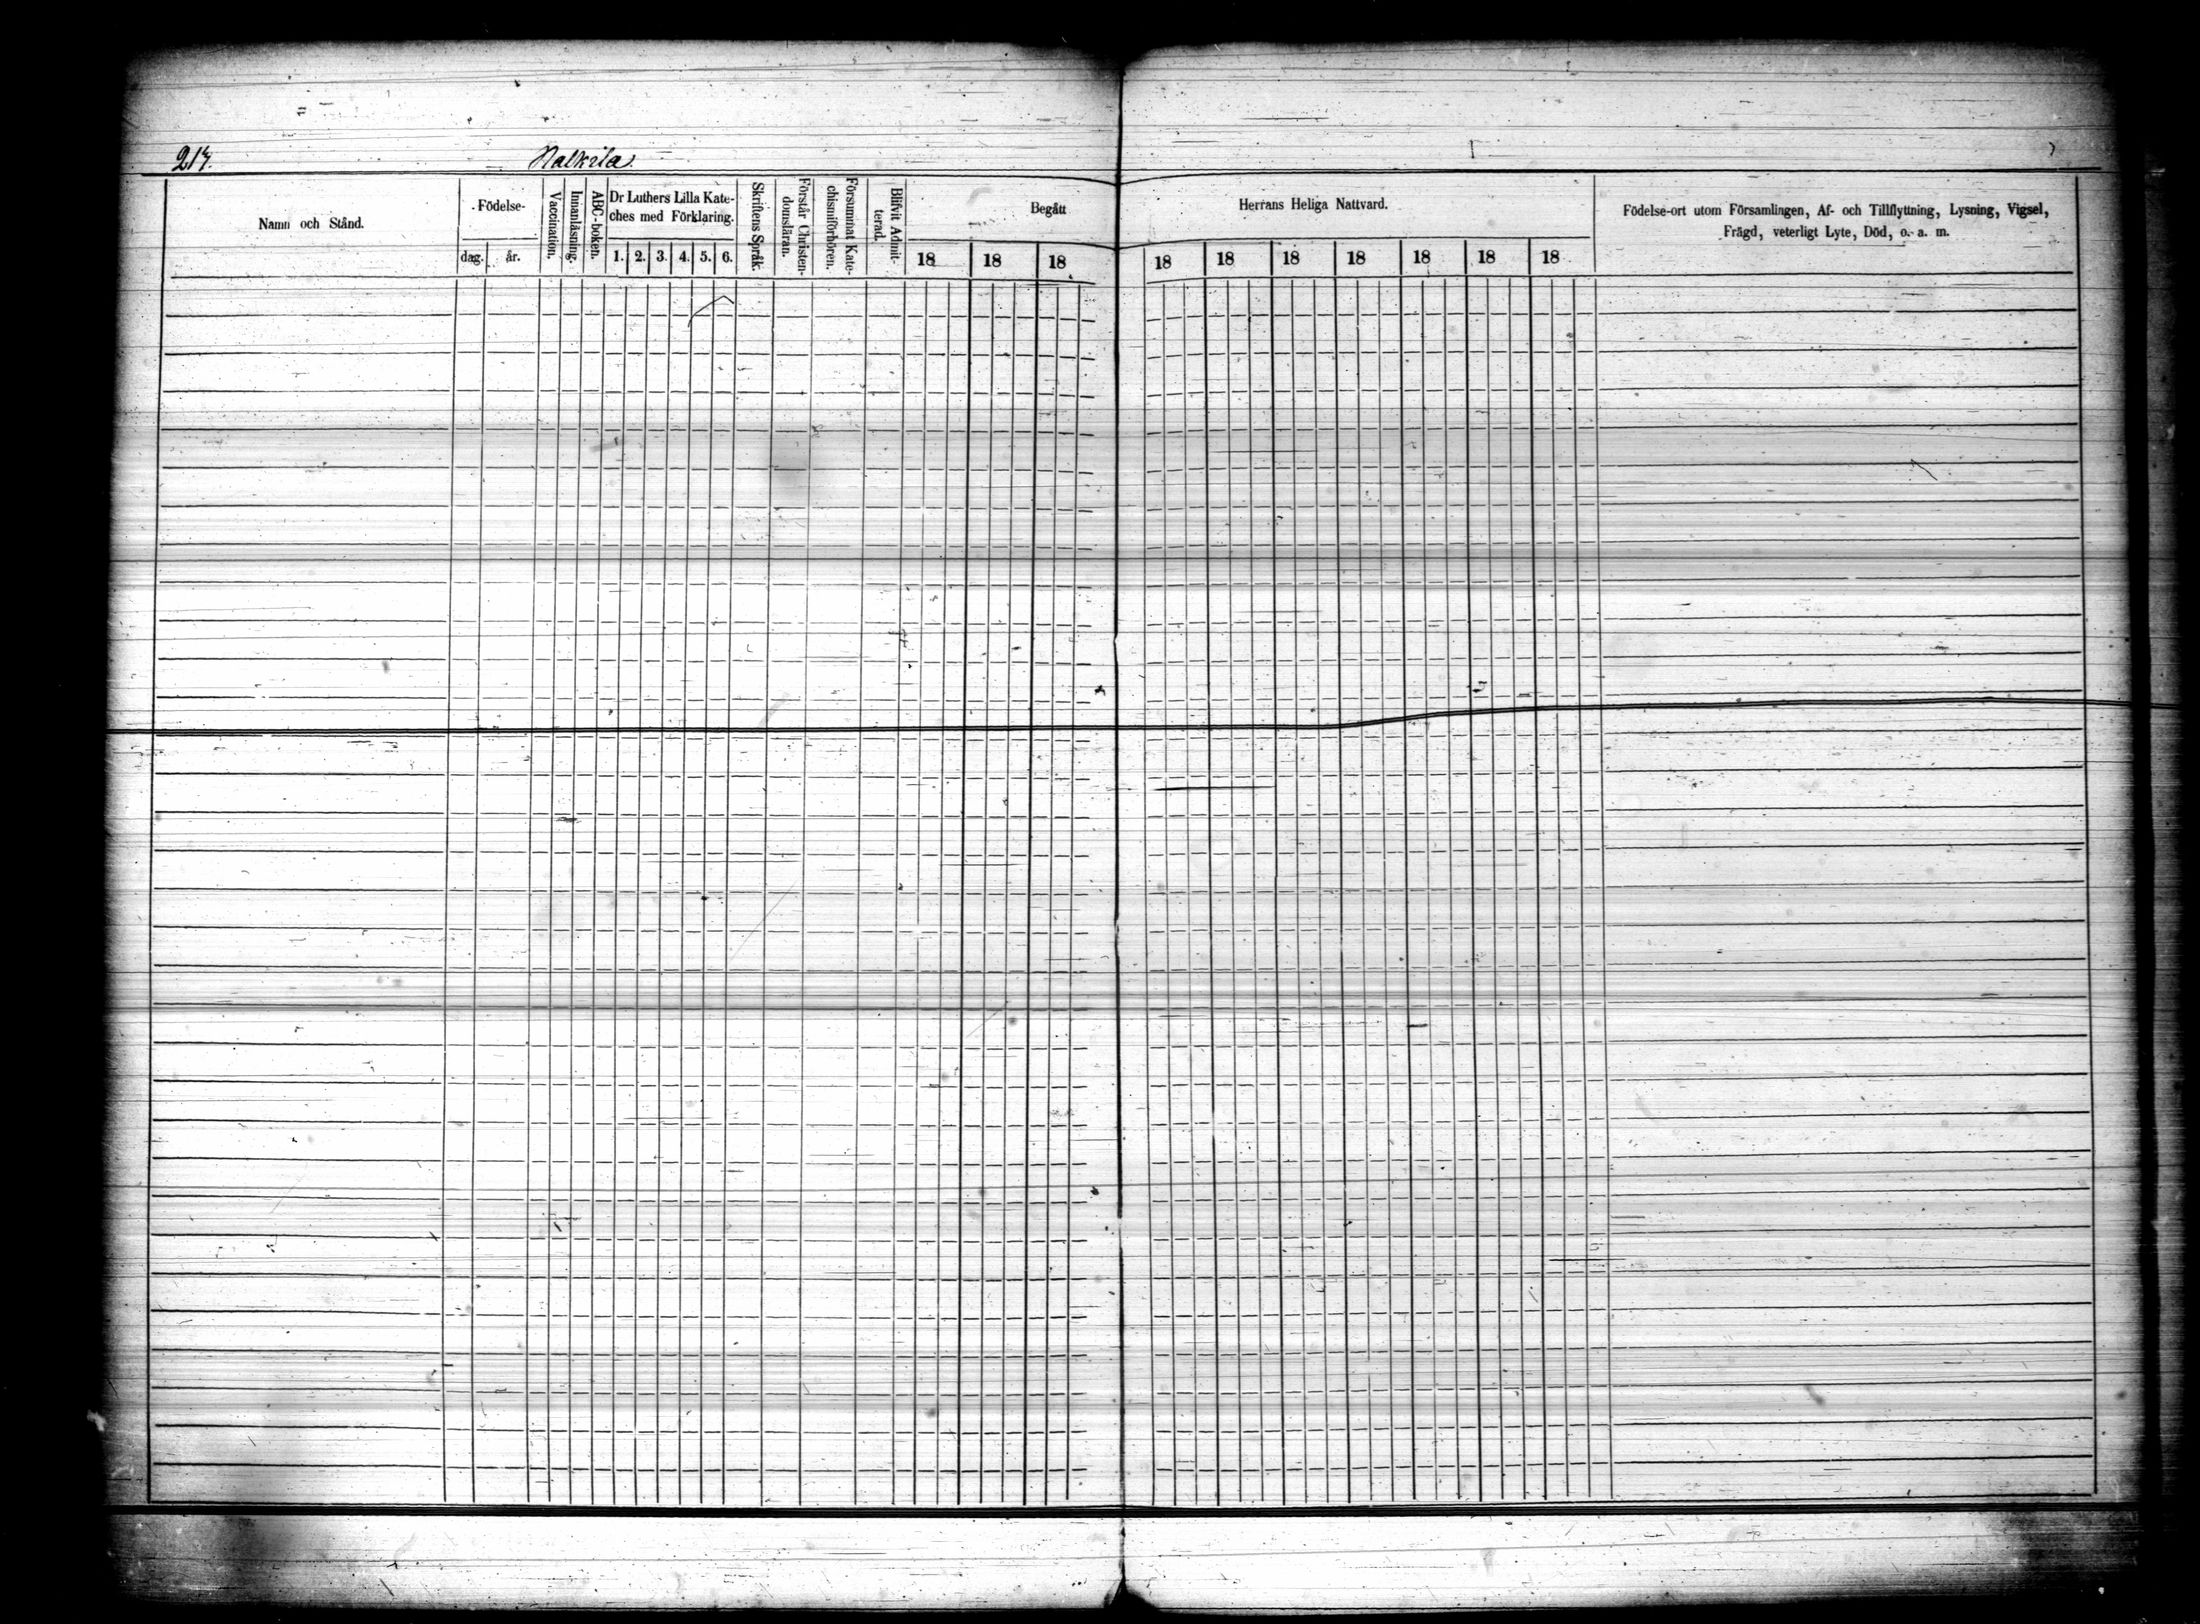 217. Nalkila.
Namn och Stånd.
Födelse-
dag. år.
Vaccination.
Innanläsning.
ABC-boken.
Dr Luthers Lilla Kate-
ches med Förklaring.
1. 2. 3. 4. 5. 6.
Skriftens Språk.
Förstår Christen-
domsläran.
Försummat Kate-
chismiförhören.
Blifvit Admit-
terad.
Begått
18 18 18
Herrans Heliga Nattvard.
18 18 18 18 18 18 18
Födelse-ort utom Församlingen, Af- och Tillflyttning, Lysning, Vigsel,
Frägd, veterligt Lyte, Död, o. a. m.